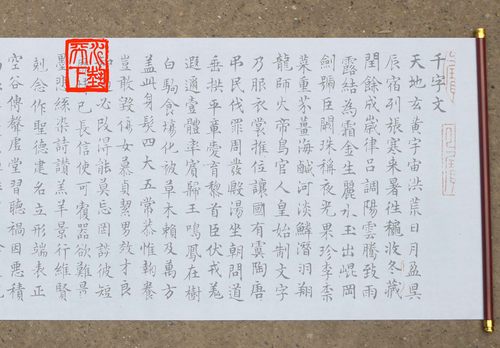 千字文
天地玄黃宇宙洪荒日月盈昃
辰宿列張寒來暑徃穐收冬藏
閏餘成歲律呂調陽雲騰致雨
露結為霜金生麗水玉出崐岡
劍號巨闕珠稱夜光果珍李柰
菜重芥薑海鹹河淡鱗潛羽翔
龍師火帝鳥官人皇始制文字
乃服衣裳推位讓國有虞陶唐
弔民伐罪周發殷湯坐朝問道
垂拱平章愛育黎首臣伏戎羌
遐邇壹體率賓歸王鳴鳳在樹
白駒食場化被草木賴及萬方
蓋此身髮四大五常恭惟鞠養
豈敢毀傷女慕貞絜男效才良
必改得能莫忘罔談彼短
己長信使可覆器欲難量
墨悲絲染詩讚羔羊景行維賢
剋念作聖德建名立形端表正
空谷傳聲虛堂習聽禍因惡積